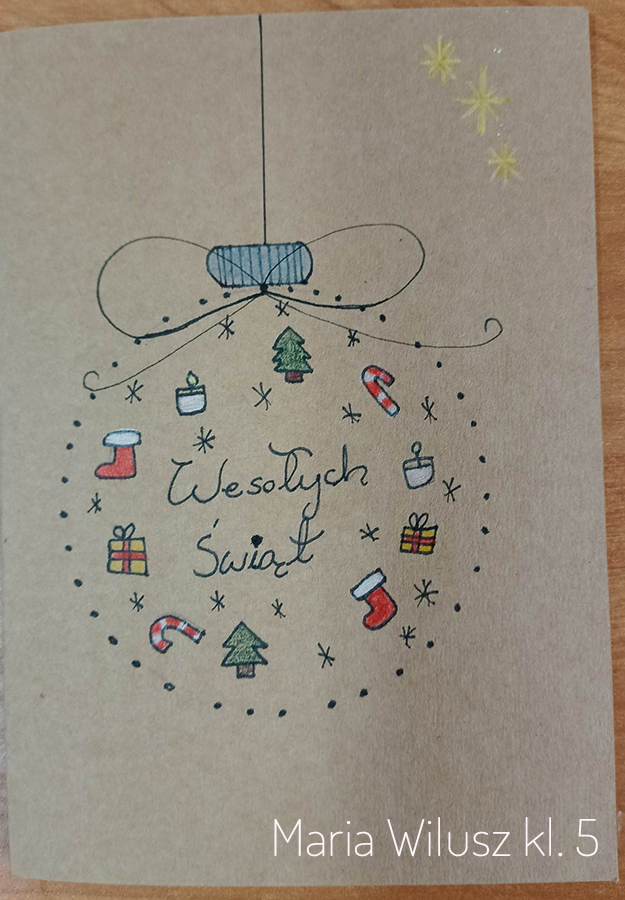 Wesołych
Świąt
Maria Wilusz kl. 5